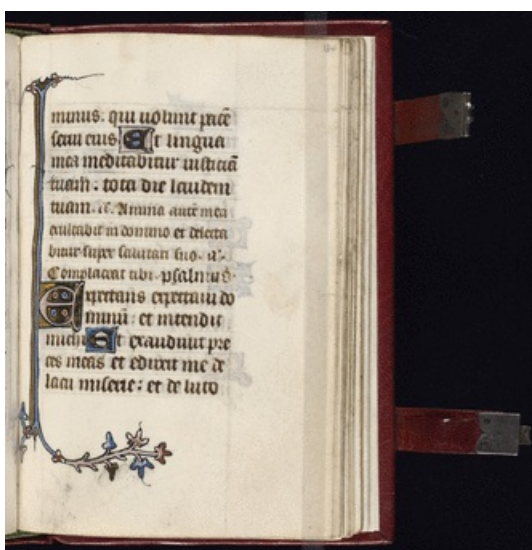 minus. qui uolunt pacē
serui eius Et lingua
mea meditabitur iusticiā
tuam: tota die laudem
tuam. Anima autē mea
exultabit in domino et delecta
bitur super salutari suo. a.
Complaceat tibi. psalmus.
Expectans expectaui do
minū: et intendit
michi Et exaudiuit pre
ces meas et eduxit me de
lacu miserie: et de luto